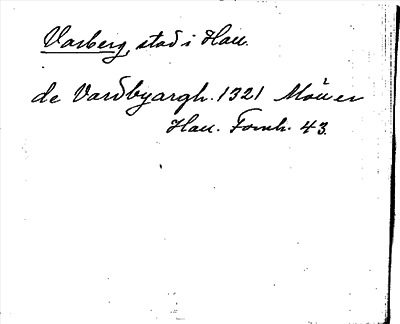 Varberg, stad i Hall.
de Vardbyargh. 1321 Möller
Hall. Fornh. 43.